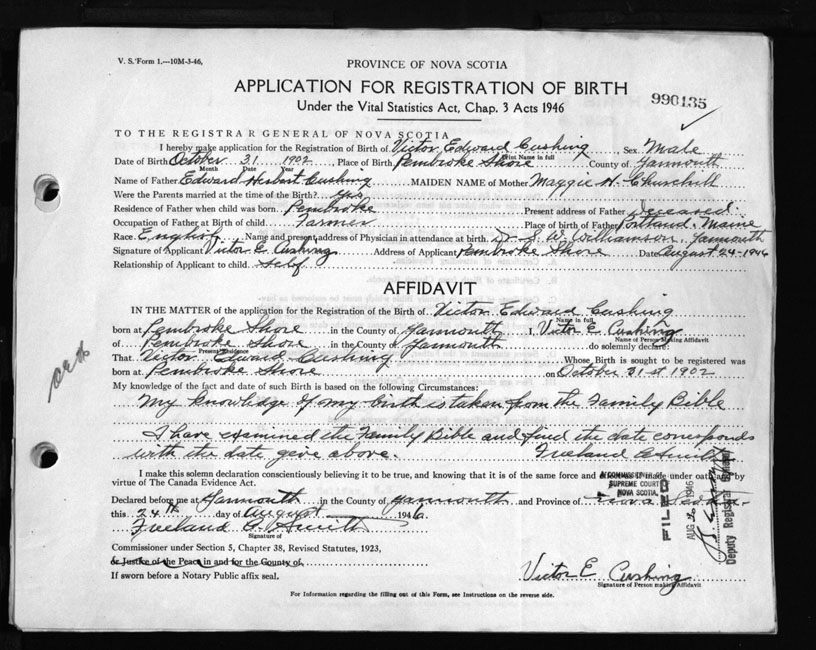 V. S. Form 1.—10M-3-46,
PROVINCE OF NOVA SCOTIA
APPLICATION FOR REGISTRATION OF BIRTH
Under the Vital Statistics Act, Chap. 3 Acts 1946
990135
TO THE REGISTRAR GENERAL OF NOVA SCOTIA
I hereby make application for the Registration of Birth of Victor Edward Cushing, Sex Male
Print Name in full
Date of Birth October 31 1902, Place of Birth Pembroke Shore County of Yarmouth
Month Date Year
Name of Father Edward Herbert Cushing MAIDEN NAME of Mother Maggie H. Churchill
Were the Parents married at the time of the Birth? Yes
Residence of Father when child was born. Pembroke Present address of Father deceased
Occupation of Father at Birth of child Farmer Place of birth of Father Portland. Maine
Race. English Name and present address of Physician in attendance at birth. Dr. S. W. Williamson, Yarmouth
Signature of Applicant Victor E Cushing Address of Applicant Pembroke Shore Date August 24-1946
Relationship of Applicant to child. Self
AFFIDAVIT
IN THE MATTER of the application for the Registration of the Birth of Victor Edward Cushing
Name in full
born at Pembroke Shore in the County of Yarmouth I, Victor E. Cushing
Name of Person Making Affidavit
of Pembroke Shore in the County of Yarmouth do solemnly declare:
Present Residence
That Victor Edward Cushing Whose Birth is sought to be registered was
born at Pembroke Shore on October 31st 1902
My knowledge of the fact and date of such Birth is based on the following Circumstances:
My knowledge of my birth is taken from the Family Bible
I have examined the Family Bible and find the date corresponds
with the date gave above. Freeland A Smith
I make this solemn declaration conscientiously believing it to be true, and knowing that it is of the same force and if made under oath and by
virtue of The Canada Evidence Act.
A COMMISSIONER
SUPREME COURT
NOVA SCOTIA
Declared before me at Yarmouth in the County of Yarmouth and Province of Nova Scotia
this 24th day of August 1946.
Freeland A. Smith
Signature of
Commissioner under Section 5, Chapter 38, Revised Statutes, 1923,
or Justice of the Peace in and for the County of
If sworn before a Notary Public affix seal.
FILED
AUG 1946
Deputy Registrar General
Victor E Cushing
Signature of Person making Affidavit
For Information regarding the filling out of this Form, see Instructions on the reverse side.